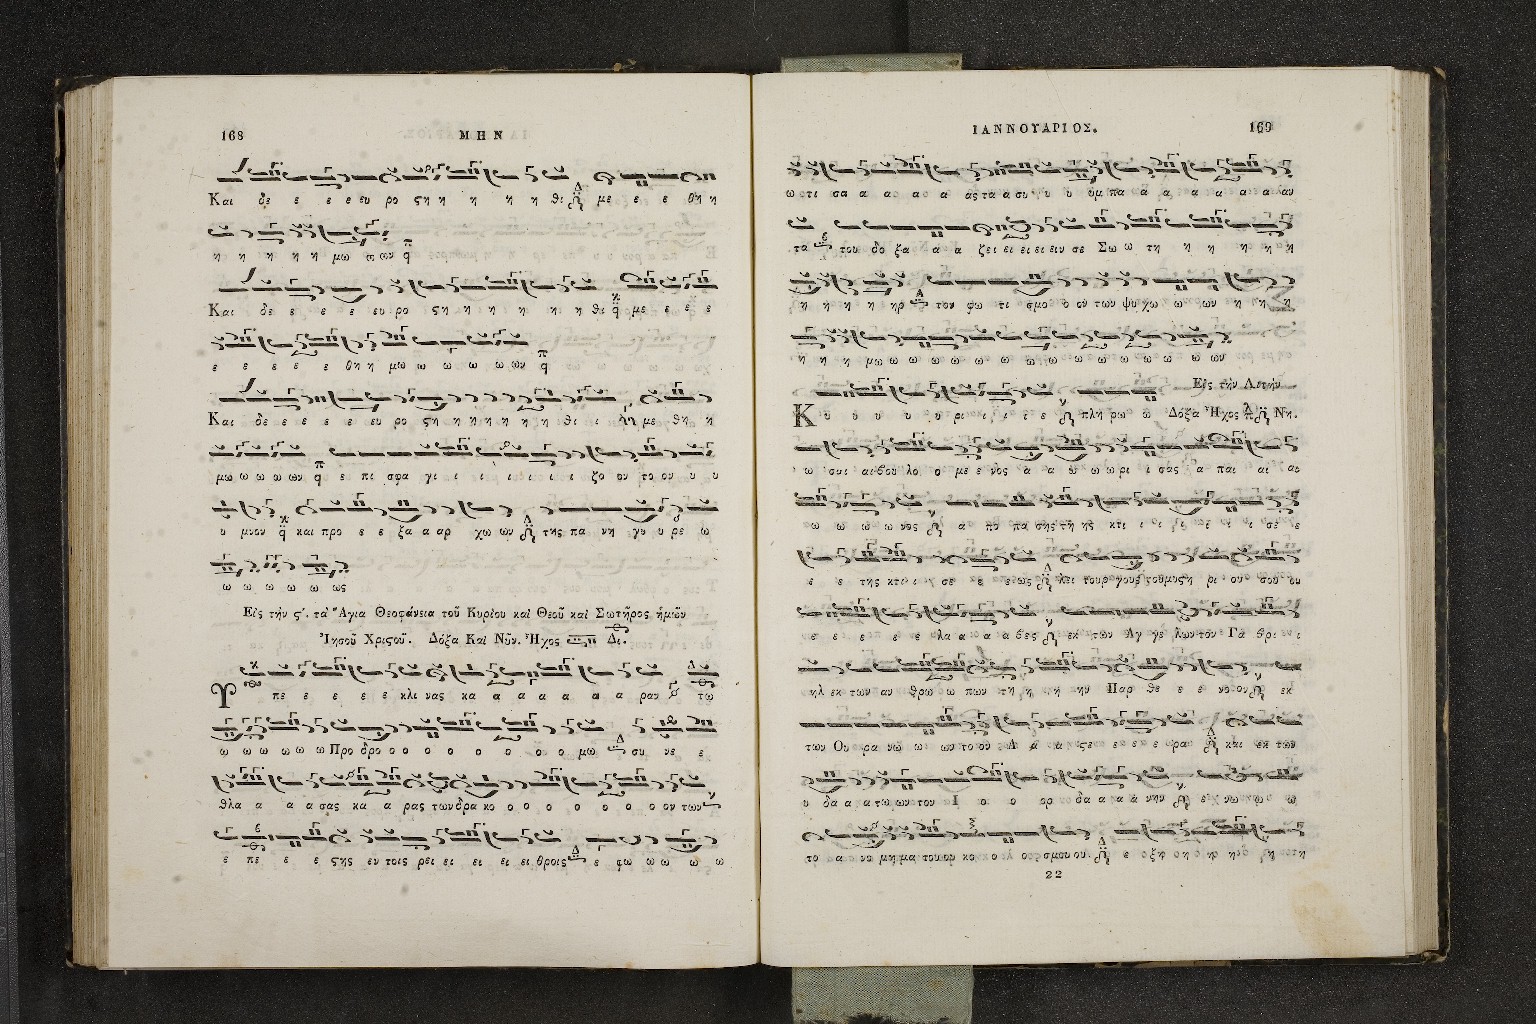 168 ΜΗΝ
Και δε ε ε ε ευ ρο ϛη η η η η θι με ε ε θη η
η η η η η μω ω ων
Και δε ε ε ε ε ευ ρο ϛη η η η η η η θι με ε ε ε
ε ε ε ε ε θη η μω ω ω ω ω ων
Και δε ε ε ε ε ε ευ ρο ϛη η η η η η η θι ι με θη η
μω ω ω ω ων ε πι σφα γι ι ι ι ι ι ι ζο ον το ον υ υ
υ μνον και προ ε ε ξα α αρ χω ων της πα νη γυ υ ρε ω
ω ω ω ω ω ως
Εἰς τὴν ϛ΄. τὰ Ἅγια Θεοφάνεια τοῦ Κυρίου καὶ Θεοῦ καὶ Σωτῆρος ἡμῶν
Ἰησοῦ Χριϛοῦ. Δόξα Καὶ Νῦν. Ἦχος Δι.
Υ πε ε ε ε ε κλι νας κα α α α α α α ραν τω
ω ω ω ω ω ω Προ δρο ο ο ο ο ο ο ο ο μω συ νε ε
θλα α α α σας κα α ρας των δρα κο ο ο ο ο ο ο ο ο ον των
ε πε ε ε ϛης εν τοις ρει ει ει ει ει θροις ε φω ω ω ω ω
ΙΑΝΝΟΥΑΡΙΟΣ. 169
ω τι σα α α α α α ας τα α συ υ υ υμ πα α α α α α α αν
τα του δο ξα α α ζει ει ει ει ειν σε Σω ω τη η η η η η
η η η η ηρ τον φω τι σμο ο ον των ψυ χω ω ων η η η
η η η μω ω ω ω ω ω ω ω ω ω ω ω ω ω ων
Εἰς τὴν Λιτὴν
Κυ υ υ υ υ ρι ι ι ι ε πλη ρω ω Δόξα Ἦχος Νη.
ω σαι αι βου λο ο με ε νος α α ω ω ω ρι ι σας α παι αι αι
ω ω ω ω νος α πο πα σης τη ης κτι ι ι ι ι ι ι σε ε
ε ε της κτι ι ι σε ε ε εως λει τουρ γους του μυϛη ρι ου σου ου
ε ε ε ε ε λα α α α βες εκ των Αγ γε λων τον Γα βρι ι
ηλ εκ των αν θρω ω πων τη η η ην Παρ θε ε ε νο ον εκ
των Ου ρα νω ω ων το ον Α α α ϛε ε ε ε ρα και εκ των
υ δα α α τω ων τον Ι ο ο ορ δα α α α νην ε νω ω ω
το α νο μη μα του ου κο ο ο ο ο σμου ου ε ξη η η η η η η η
22